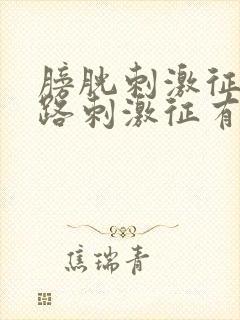 膀胱刺激征
路刺激征有
焦瑞青